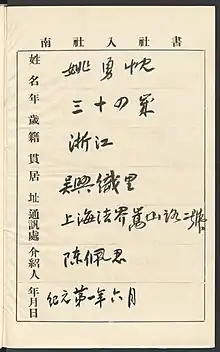 南社入社書
姓名年歲籍貫居址通訊處介紹人年月日
姚勇忱
三十四歲
浙江
吳興織里
上海法界嵩山路二號
陳佩忍
紀元第一年六月